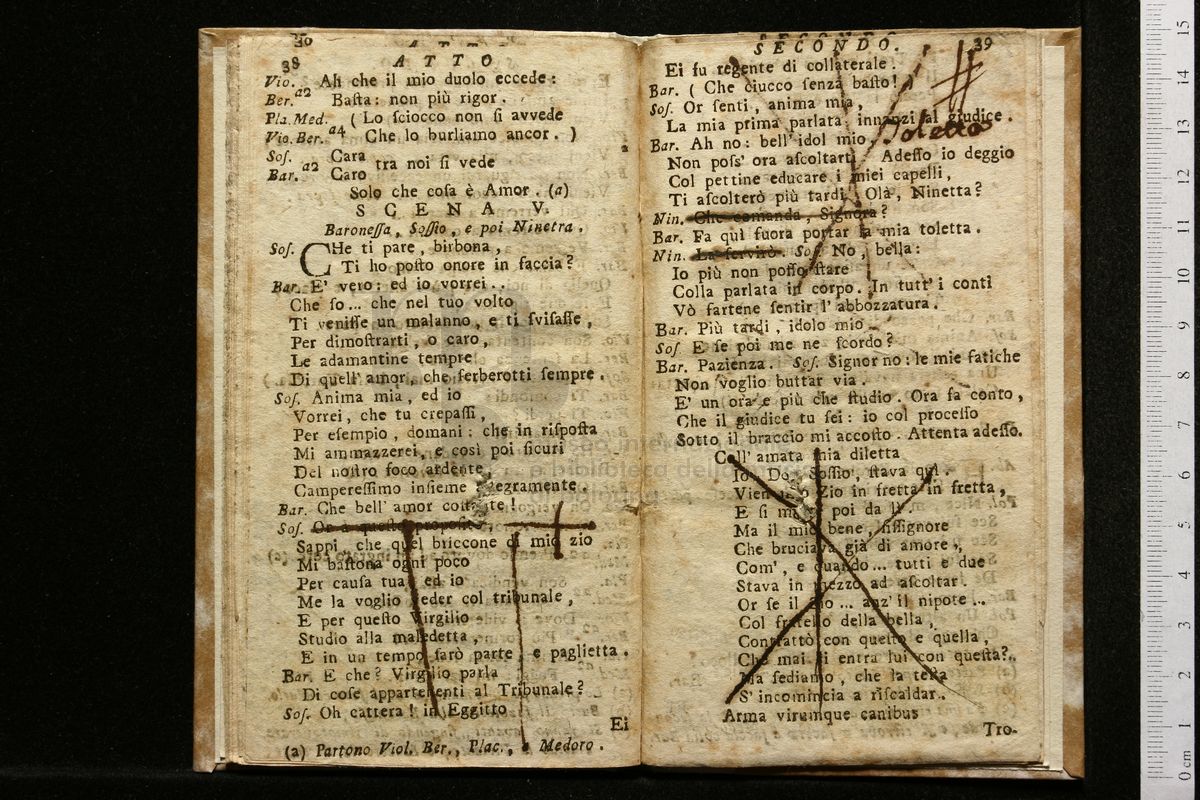 38
ATTO
Vio. Ah che il mio duolo eccede:
Ber. a2 Baſta: non più rigor.
Pla. Med. (Lo ſciocco non ſi avvede
Vio. Ber. a4 Che lo burliamo ancor. )
Soſ. Cara
Bar. a2 Caro tra noi ſi vede
Solo che coſa è Amor. (a)
SCENA V.
Baroneſſa, Soſſio, e poi Ninetta.
Soſ. CHe ti pare, birbona,
Ti ho poſto onore in faccia?
Bar. E' vero: ed io vorrei..
Che ſo... che nel tuo volto
Ti veniſſe un malanno, e ti ſviſaſſe,
Per dimoſtrarti, o caro,
Le adamantine tempre
Di quell' amor, che ſerberotti ſempre.
Soſ. Anima mia, ed io
Vorrei, che tu crepaſſi,
Per eſempio, domani: che in riſpoſta
Mi ammazzerei, e così poi ſicuri
Del noſtro foco ardente,
Campereſſimo inſieme allegramente
Bar. Che bell' amor coſtante!
Soſ. Or a queſto propoſito
Sappi che quel briccone di mio zio
Mi baſtona ogni poco
Per cauſa tua, ed io
Me la voglio veder col tribunale,
E per queſto Virgilio
Studio alla maledetta,
E in un tempo farò parte, e paglietta.
Bar. E che? Virgilio parla
Di coſe appartenenti al Tribunale?
Soſ. Oh cattera! in Eggitto
Ei
(a) Partono Viol. Ber., Plac., e Medoro.
SECONDO.
39
Ei fu regente di collaterale.
Bar. (Che ciucco ſenza baſto!)
Soſ. Or ſenti, anima mia,
La mia prima parlata innanzi al giudice.
Toletta
Bar. Ah no: bell' idol mio,
Non poſs' ora aſcoltarti. Adeſſo io deggio
Col pettine educare i miei capelli,
Ti aſcolterò più tardi. Olà, Ninetta?
Nin. Che comanda, Signora?
Bar. Fa quì fuora portar la mia toletta.
Nin. La ſervirò. Soſ. No, bella:
Io più non poſſo ſtare
Colla parlata in corpo. In tutt' i conti
Vò fartene ſentir l' abbozzatura.
Bar. Più tardi, idolo mio.
Soſ E ſe poi me ne ſcordo?
Bar. Pazienza. Soſ. Signor no: le mie fatiche
Non voglio buttar via.
E' un ora e più che ſtudio. Ora fa conto,
Che il giudice tu ſei: io col proceſſo
Sotto il braccio mi accoſto. Attenta adeſſo.
Coll' amata mia diletta
Io Don Soſſio, ſtava quì.
Zio in fretta in fretta,
E ſi poi da lì.
Ma il mio bene, ſiſſignore
Che bruciava già di amore,
Com', e quando... tutti e due
Stava in mezzo ad aſcoltar.
Or ſe il zio... anz' il nipote...
Col fratello della bella,
Contrattò con queſto e quella,
Che mai ci entra lui con queſta?..
Ma ſediamo, che la teſta
S' incomincia a riſcaldar..
Arma virumque canibus
Tro-